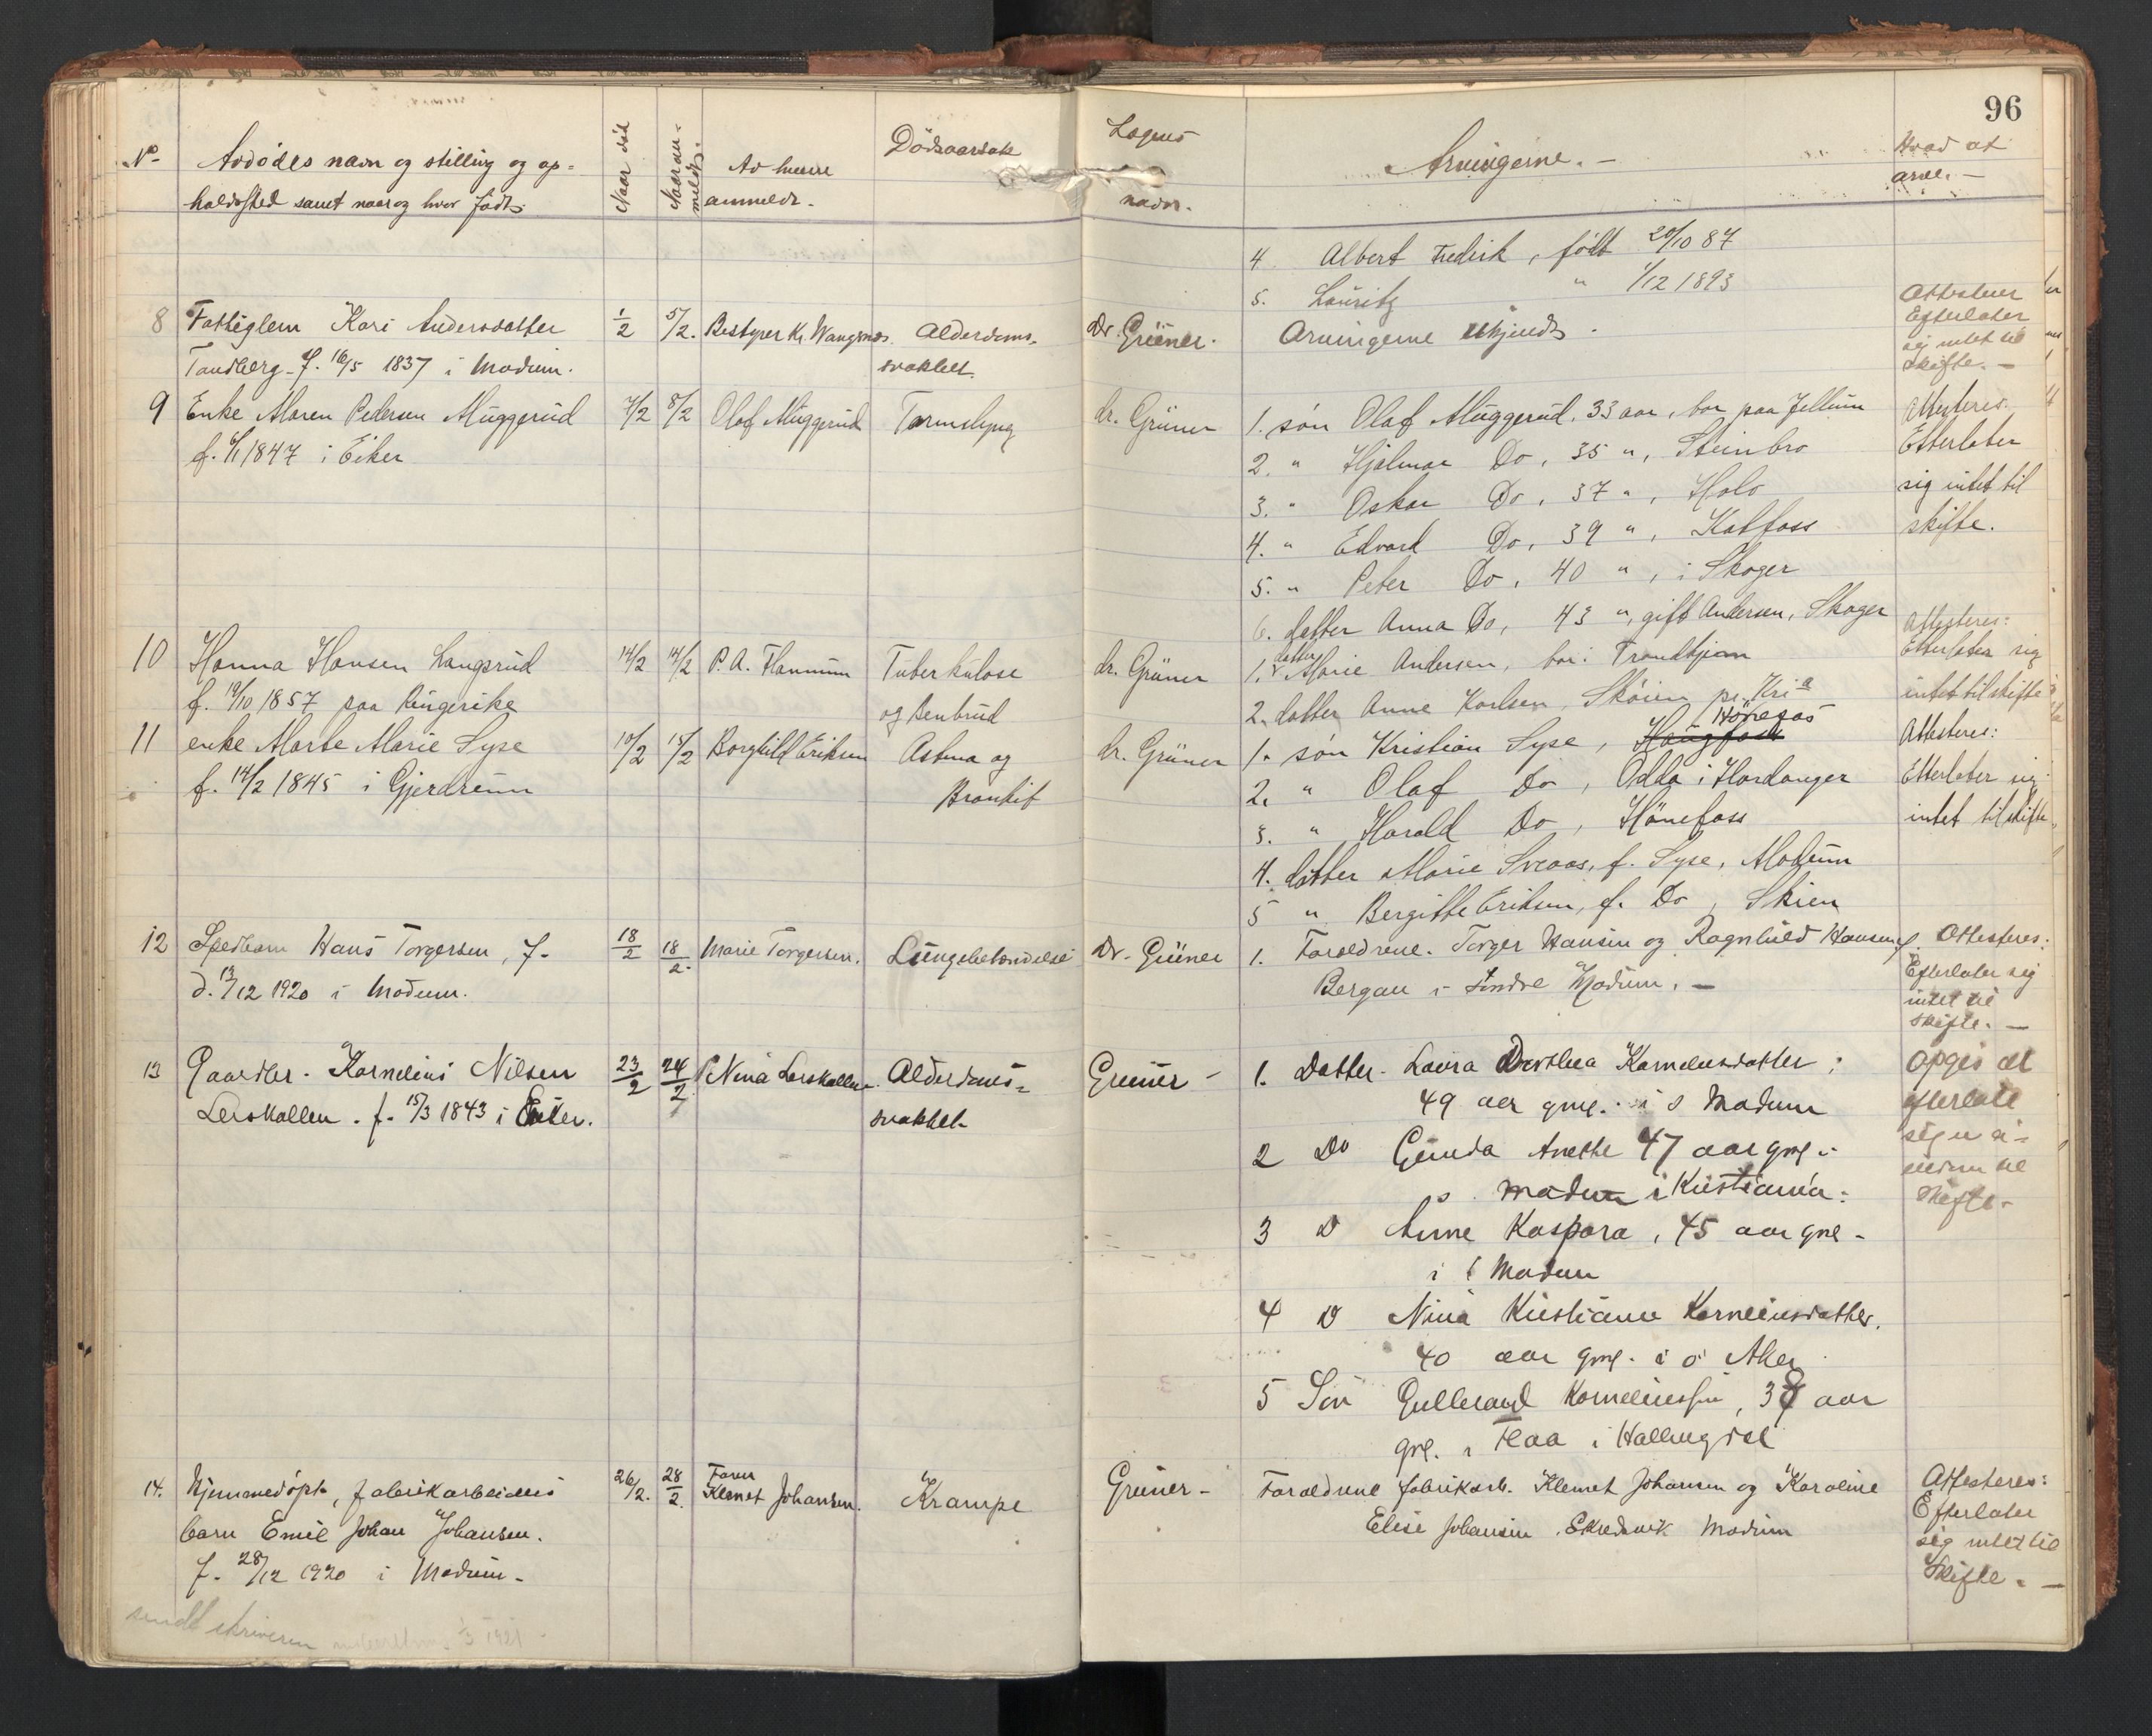 96
No
Avdødes navn og stilling og op=
holdssted samt naar og hvor født.
Naar død
Naar an-
meldt.
Av hvem
anmeldt.
Dødsaarsak
Lægens
navn.
Arvingerne. -
Hvad at
arve. -
4 Albert Fredrik, født 20/10 87
5. Lauritz " 1/12 1893
8 Fattiglem Kari Andersdatter
Tandberg f. 16/5 1837 i Modum.
1/2 5/2. Bestyrer Kr. Wangsnes. Alderdoms-
svakhet.
Dr. Grüner. Arvingerne ukjendt.
Attesteres
Efterlater
sig intet til
Skifte. -
9 Enke Maren Pedersen Muggerud
f. 6/1 1847 i Eker
7/2 8/2 Olaf Muggerud Tarmslyng
dr. Grüner
1. søn Olaf Muggerud, 33 aar, bor paa Jellum
2. " Hjalmar Do, 35 ", Steinbro
3. " Oskar Do, 37 ", Holo
4. " Edvard Do, 39 ", Katfoss
5. " Peter Do, 40 ", i Skoger
6. datter Anna Do, 43 ", gift Andersen, Skoger
Attesteres.
Efterlater
sig intet til
skifte.
10 Hanna Hansen Langsrud
f. 19/10 1857 paa Ringerike
14/2 14/2 P. A. Flannum Tuberkulose
og Benbrud
dr. Grüner
1. datter Marie Andersen, bor i Trondhjem
2. datter Anne Karlsen, Skøien pr. Kria
Attesteres:
Efterlater sig
intet til skifte
11 enke Marte Marie Syse
f. 14/2 1845 i Gjerdrum
10/2 15/2 Borghild Eriksen Astma og
Bronkit
dr. Grüner
1. søn Kristian Syse, Haugfoss Hönefos
2. " Olaf Do, Odda i Hardanger
3. " Harald Do, Hönefoss
4. datter Marie Sveaas, f. Syse, Modum
5 " Bergitte Eriksen, f. Do, Skien
Attesteres:
Efterlater sig
intet til skifte
12 Spedbarn Hans Torgersen, f.
d. 13/12 1920 i Modum.
18/2 18/2. Marie Torgersen. Lungebetændelse
Dr. Grüner
1. Forældrene. Torger Hansen og Ragnhild Hansen f.
Bergan i Søndre Modum. -
Attesteres:
Efterlater sig
intet til
skifte. -
13 Gaardbr. Kornelius Nilsen
Lerskallen. f. 15/3 1843 i Eker.
23/2 24/2 Nina Lerskallen. Alderdoms=
svakhet.
Grüner -
1. Datter Lovra Dorthea Korneliusdatter;
49 aar gml. i s Modum
2 Do Gunda Anette 47 aar gml i
s. Modum i Kristiania.
3 D Anne Kaspara, 45 aar gml -
i s Modum
4 D Nina Kristiane Korneliusdatter.
40 aar gml. i ø Aker
5 Søn Gulbrand Korneliussøn, 37 aar
gml. i Flaa i Hallingdal
Opgis at
efterlate
sig
til
Skifte.
14. Hjemmedöpt, fabrikarbeiders
barn Emil Johan Johansen.
f. 28/12 1920 i Modum -
26/2. 28/2. Faren
Klemet Johansen. Krampe
Grüner -
Forældrene fabrikarb. Klemet Johansen og Karoline
Elise Johansen. Skredsvik Modum
Attesteres:
Efterlater
sig intet til
Skifte. -
sendt skriveren 1/3 1921